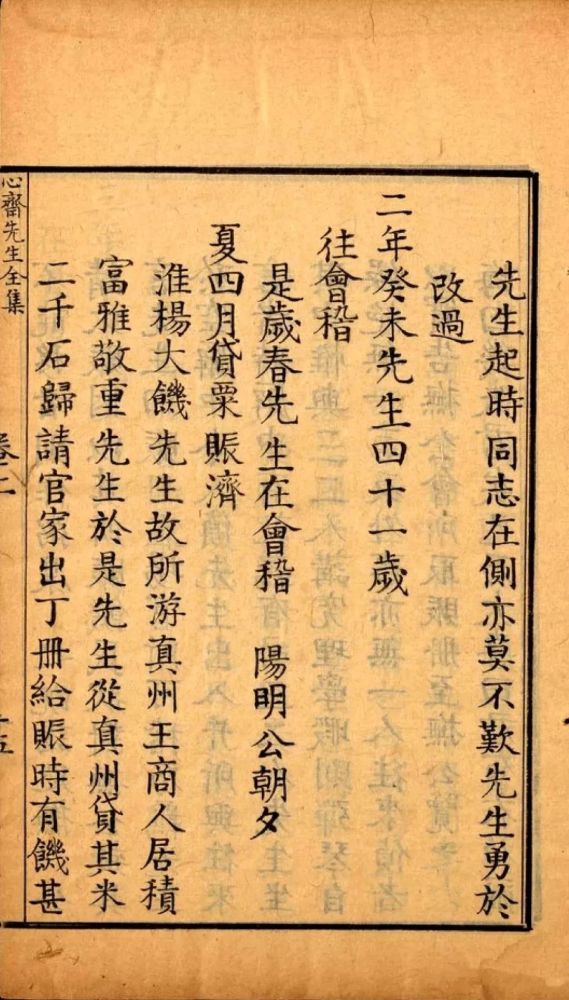 先生起時同志在側亦莫不歎先生勇於
改過
二年癸未先生四十一歲
往會稽
是歲春先生在會稽　陽明公朝夕
夏四月貸粟賑濟
淮楊大饑先生故所游真州王商人居積
富雅敬重先生於是先生從真州貸其米
二千石歸請官家出丁册給賑時有饑甚
心齋先生全集